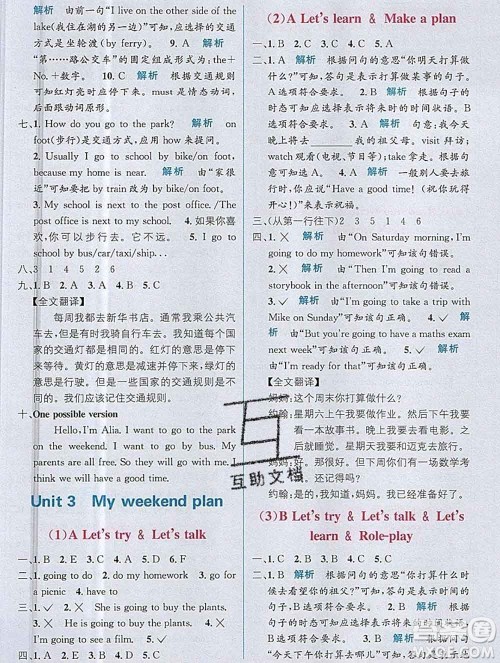 解析 由前一句“I live on the other side of the
lake(我住在湖的另一边)”可知,应选择的交通
方式是坐轮渡(by ferry)。 9. A 解析
“第……路公交车”的固定组成形式为:the
+No.+数字。 10. C 解析 根据句意可知,
此处表示必须遵守交通规则,应选择选项C。
must意为“必须”,must是情态动词,后面跟
动词原形。
七、1. How do you go to the park? 解析 on
foot(步行)是交通方式,应用how来提问。
2. Usually I go to school by bike/on foot,
because my home is near. /I usually go to
school by bike/on foot. 解析 由“家很
近”可知要把by train改为by bike/on foot。
3. My school is near the post office. /The
post office is next to my school. 4. 如果你喜
欢,你可以步行。 5. 它不远。 5. I go to
school by bus/car/taxi/ship...
八、3 1 4 5 2 6
九、1. B 2. A 3. C 4. B 5. B
【全文翻译】
每周我都去新华书店。通常我乘公共汽
车去,但是有时我骑自行车去。我知道每个国
家的交通灯都是一样的。红灯的意思是停下
来等待。黄灯的意思是慢下来并停下来。绿
灯的意思是行驶。但是一些国家的交通规则
是不一样的。我们应该记住交通规则。
十、One possible version
Hello, I'm Alia. I want to go to the park
on the weekend. I want to go by bus. My
parents are free. So they will go with me.
We will have a good time.
Unit 3 My weekend plan
(1)A Let's try & Let's talk
一、1. B 2. E 3. C 4. A 5. D 6. F
二、1. going to do 2. do my homework 3. go for
a picnic 4. have to
三、1. × 2. × 3. √ 4. √ 5. √
四、1. She is going to buy the plants.
2. Is she going to buy the plants?
3. He is going to buy the plants.
4. I'm going to see a film.
(2)A Let's learn & Make a plan
一、1. B 2. C 3. A 4. C 5. A
二、1. B 解析 根据问句的意思“你明天打算
做什么?”可知,答句是表示打算做某事的句子。
B选项符合要求。 2. C 解析 根据问句的
时态可知应选择表示将来时的时间状语。B
选项符合要求。 3. A 解析 句意:我今天
晚上打算______我的祖父母。visit拜访;
watch看(电视、节目等);take带走。A选
项符合要求。 4. C 解析 一般别人要去旅
行时,应表示祝福“Have a good time! (祝你玩得
开心!)”
三、(从第一行往下)2 3 5 1 4 6
四、1. × 解析 由“On Saturday morning, I'm
going to do my homework”可知该句错误。
2. × 解析 由“Then I'm going to read a
storybook in the afternoon”可知该句错误。
3. √ 解析 由“I'm going to take a trip with
Mike on Sunday”可知该句正确。 4. √ 解析
由“But you're going to have a maths exam
next week”可知该句正确。 5. √ 解析 由
“I'm ready for that”可知该句正确。
【全文翻译】
妈妈:这个周末你打算做什么?
约翰:星期六上午我要做作业。然后下午我打
算读故事书。星期天我要和迈克去旅行。
妈妈:好。但是下周你们有一场数学考
试。
约翰:我知道,妈妈。我准备好了。
(3)B Let's try & Let's talk & Let's
learn & Role-play
一、1. B 2. A 3. C 4. A 5. B
二、1. B 解析 根据问句的意思“你打算什么时
候去看望你的祖父?”可知,答句应表示时间。
B选项符合要求。 2. A 解析 由答句的意思
“今天下午你打算干什么?”可知
互
互助文档